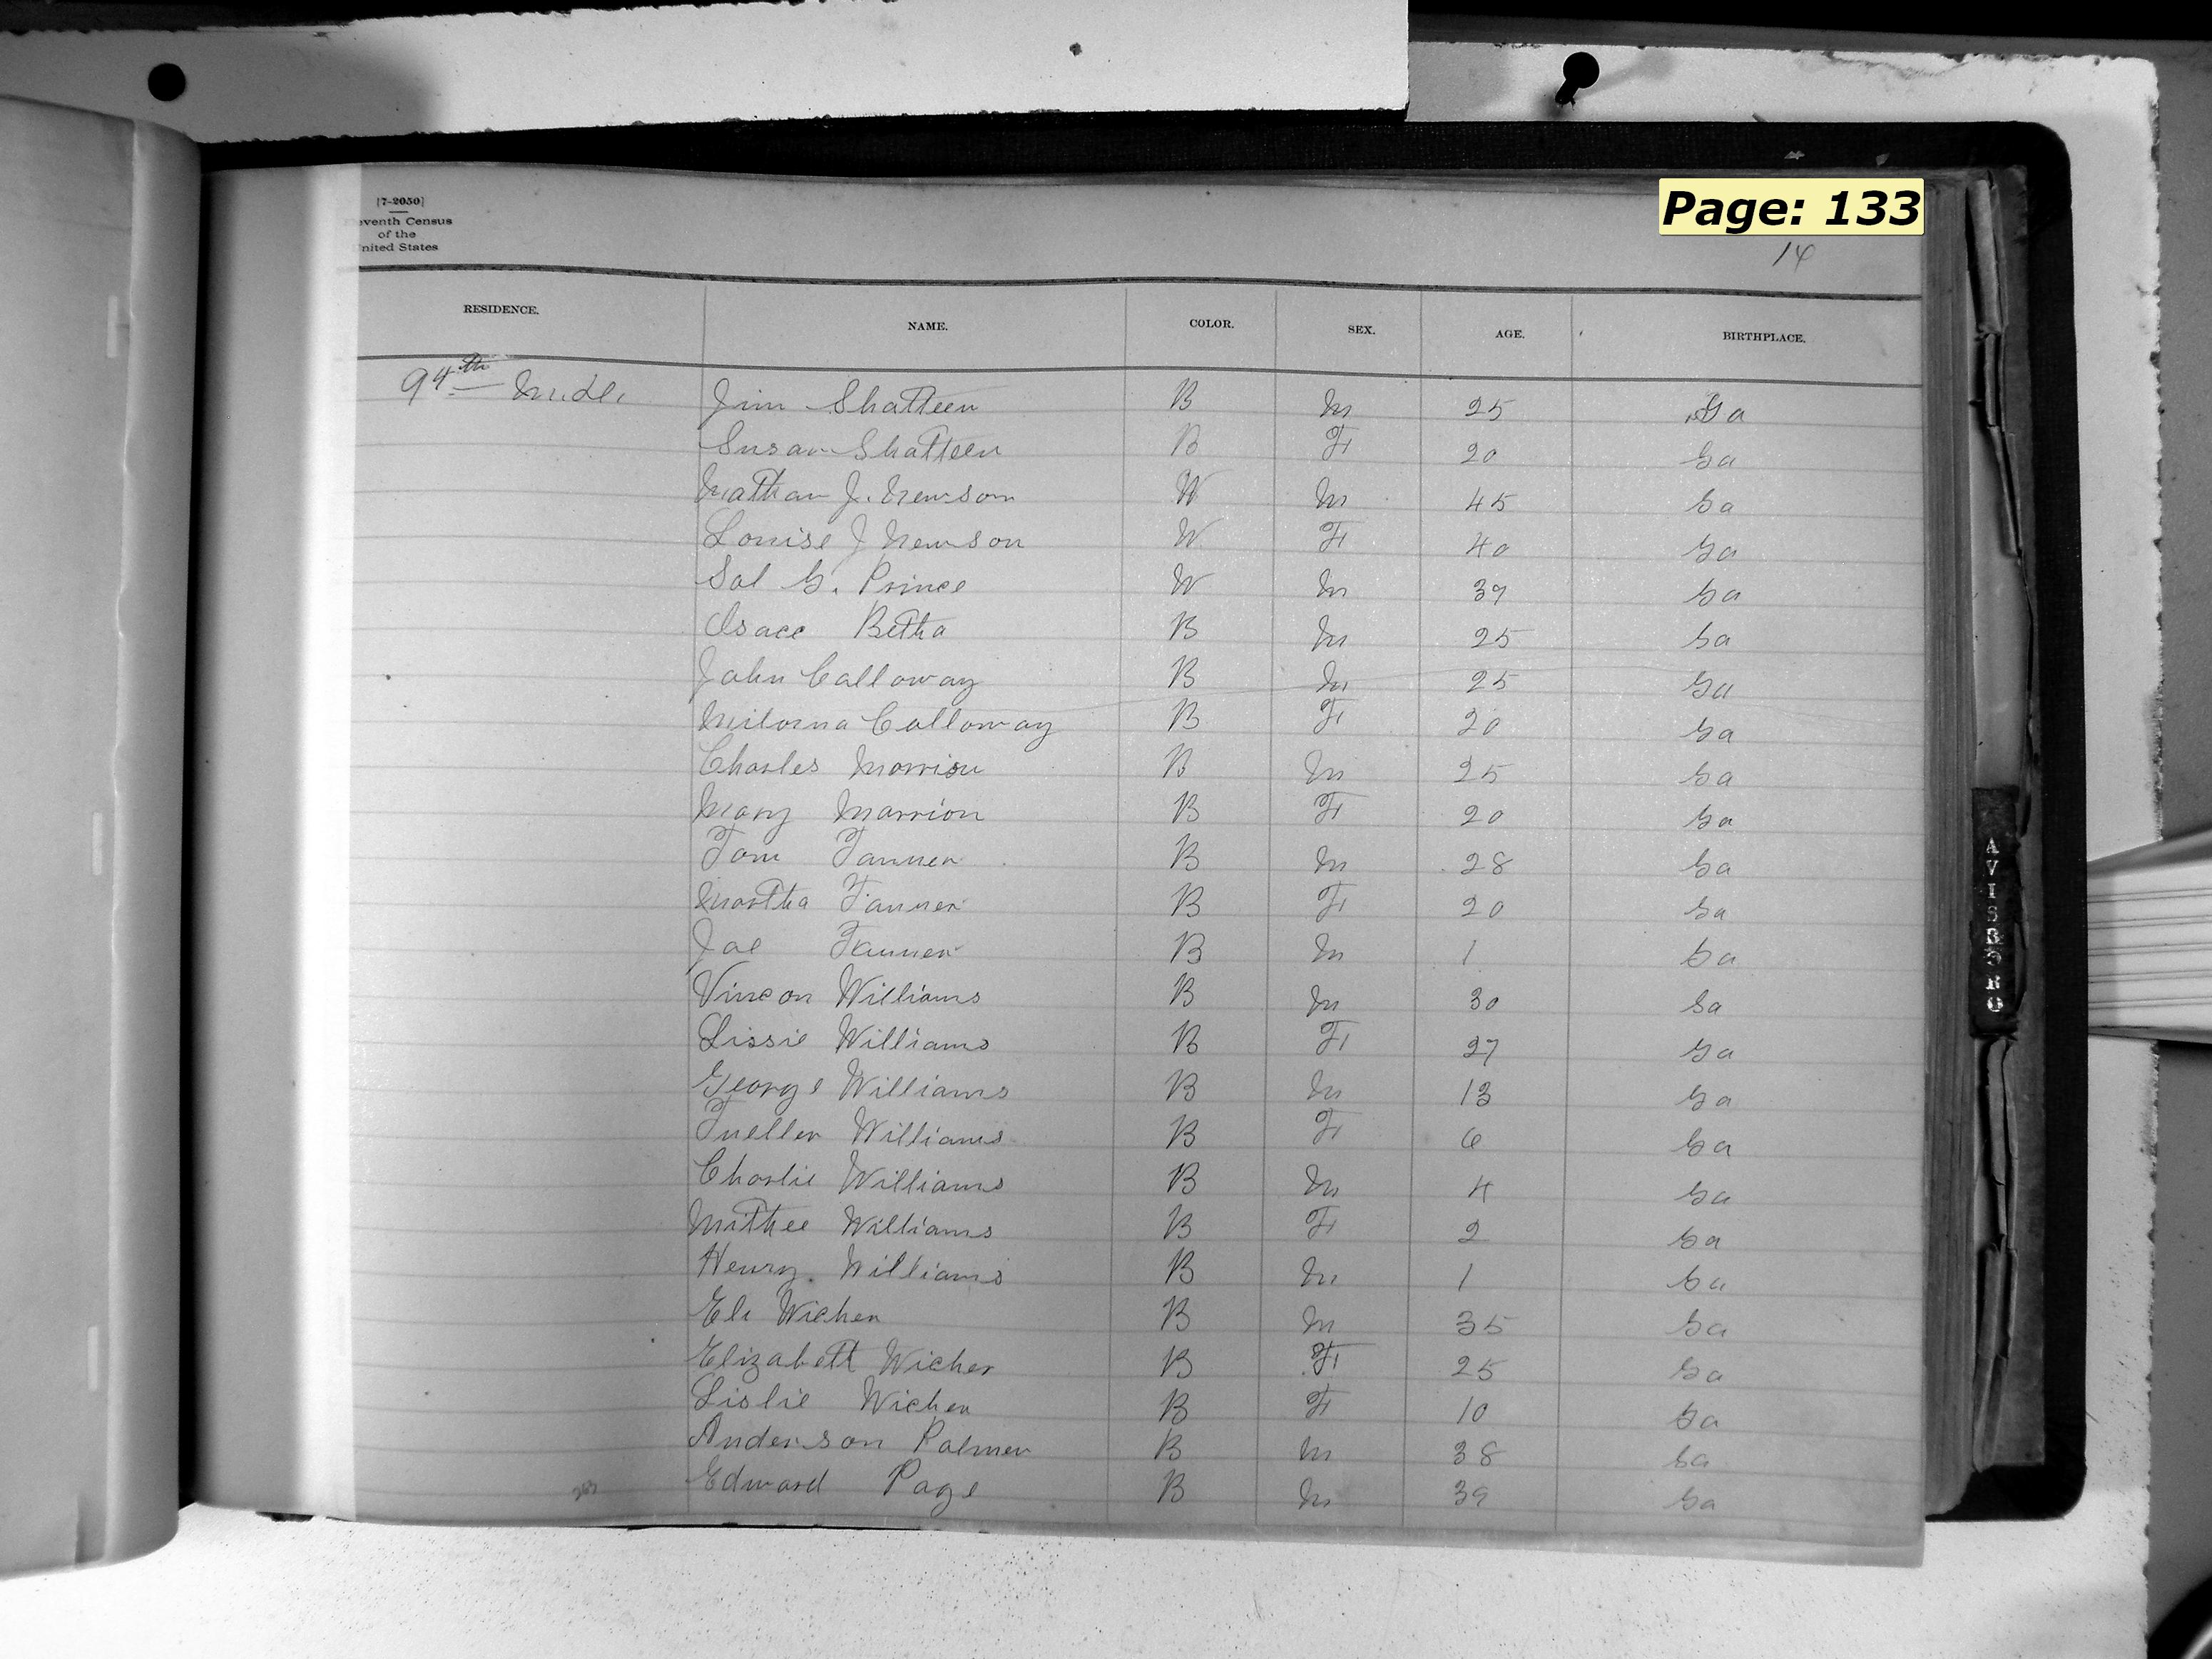 [7-2050]
eventh Census
of the
nited States
Page: 133
14
RESIDENCE. NAME. COLOR. SEX. AGE. BIRTHPLACE.
94th M.Dl. Jim Shatteen B M 25 Ga
Susan Shatteen B F 20 Ga
Nathan J. Newsom W M 45 Ga
Louise J Newson W F 40 Ga
Sol G. Prince W M 37 Ga
Isacc Betha B M 25 Ga
John Calloway B M 25 Ga
Milorna Calloway B F 20 Ga
Charles Morrison B M 25 Ga
Mary Marrion B F 20 Ga
Tom Tanner B M 28 Ga
Martha Tanner B F 20 Ga
Joe Tanner B M 1 Ga
Vincon Williams B M 30 Ga
Lissie Williams B F 27 Ga
George Williams B M 13 Ga
Fueller Williams B F 6 Ga
Charlie Williams B M 4 Ga
Mithee Williams B F 2 Ga
Henry Williams B M 1 Ga
Eli Wicher B M 35 Ga
Elizabett Wicher B F 25 Ga
Lislie Wicher B F 10 Ga
Anderson Palmer B M 38 Ga
Edward Page B M 39 Ga
AVISBORO